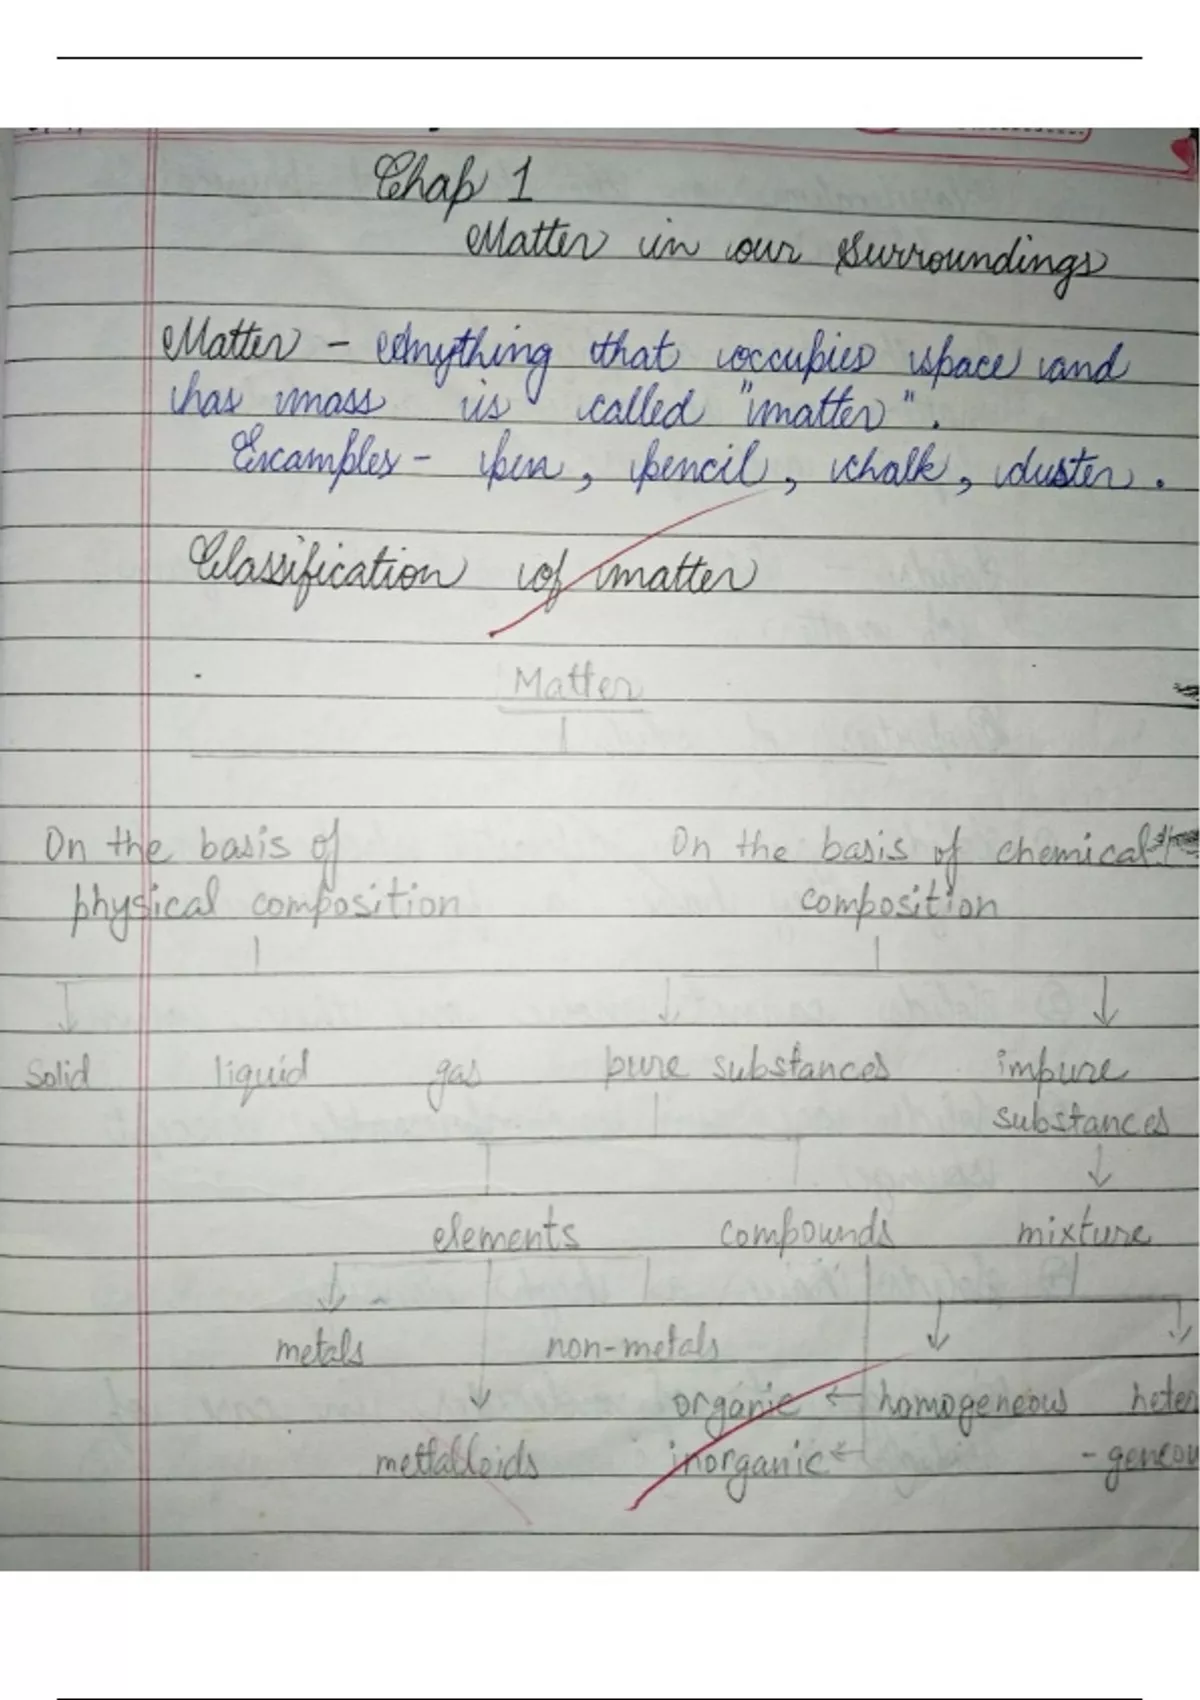 Chap 1
Matter in our Surroundings
Matter - Anything that occupies space and
has mass is called "matter".
Examples - pen, pencil, chalk, duster.
Classification of matter
Matter
On the basis of On the basis of chemical
physical composition composition
solid liquid gas pure substances impure
substances
elements compounds mixture
metals non-metals
organic homogeneous heter
mettalloids inorganic - geneou